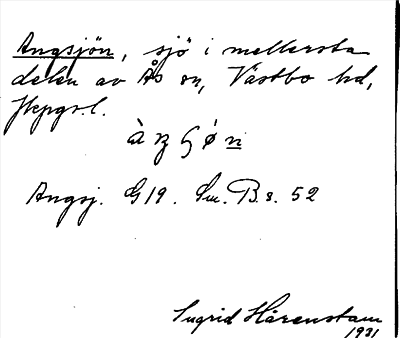 Angsjön, sjö i mellersta
delen av Ås sn, Västbo hd,
Jkpgs l.
Angsj. G 19. Sm. B. s. 52
Ingrid Härenstam
1931